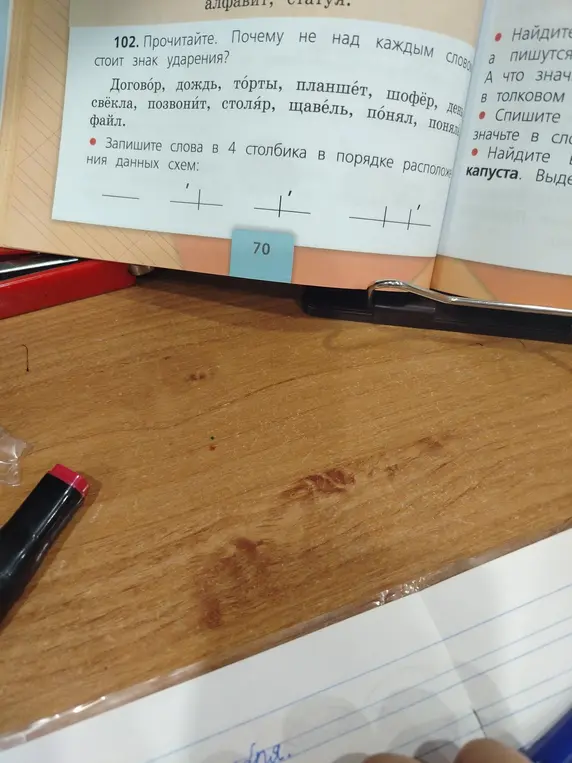 алфавит, статуя.
102. Прочитайте. Почему не над каждым словом
стоит знак ударения?
Догово́р, дождь, то́рты, планше́т, шофёр, ден
свёкла, позвони́т, столя́р, щаве́ль, по́нял, поняла
файл.
• Запишите слова в 4 столбика в порядке расположе
ния данных схем:
70
• Найдите
а пишутся
А что знач
в толковом
• Спишите
значьте в сло
• Найдите
капуста. Выде